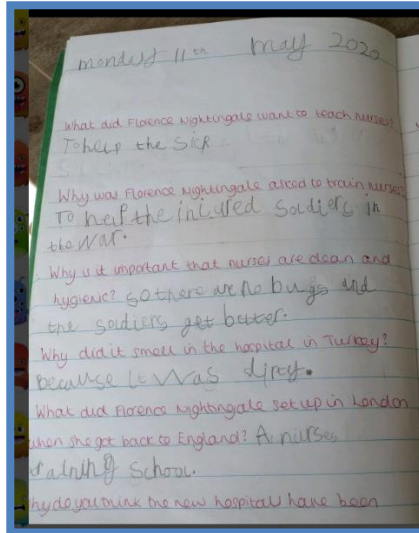 mondey 11th may 2020
What did Florence Nightingale want to teach nurses?
To help the sick
Why was Florence Nightingale asked to train nurses?
To help the injured Soldiers in
the war.
Why is it important that nurses are clean and
hygienic? so there are no bugs and
the soldiers get better.
Why did it smell in the hospital in Turkey?
because it was dirty.
What did Florence Nightingale set up in London
when she got back to England? A nurses
training School.
hy do you think the new hospital have been